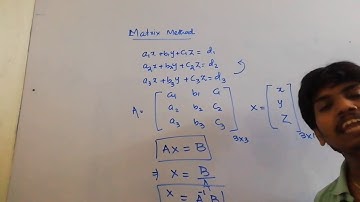 Matrix Method
a₁x+b₁y+c₁z = d₁
a₂x+b₂y+c₂z = d₂
a₃x+b₃y+c₃z = d₃
A = [ a₁ b₁ c₁
a₂ b₂ c₂
a₃ b₃ c₃ ]3x3
X = [ x
y
z ]3x1
AX = B
⇒ X = B/A
X = A⁻¹B